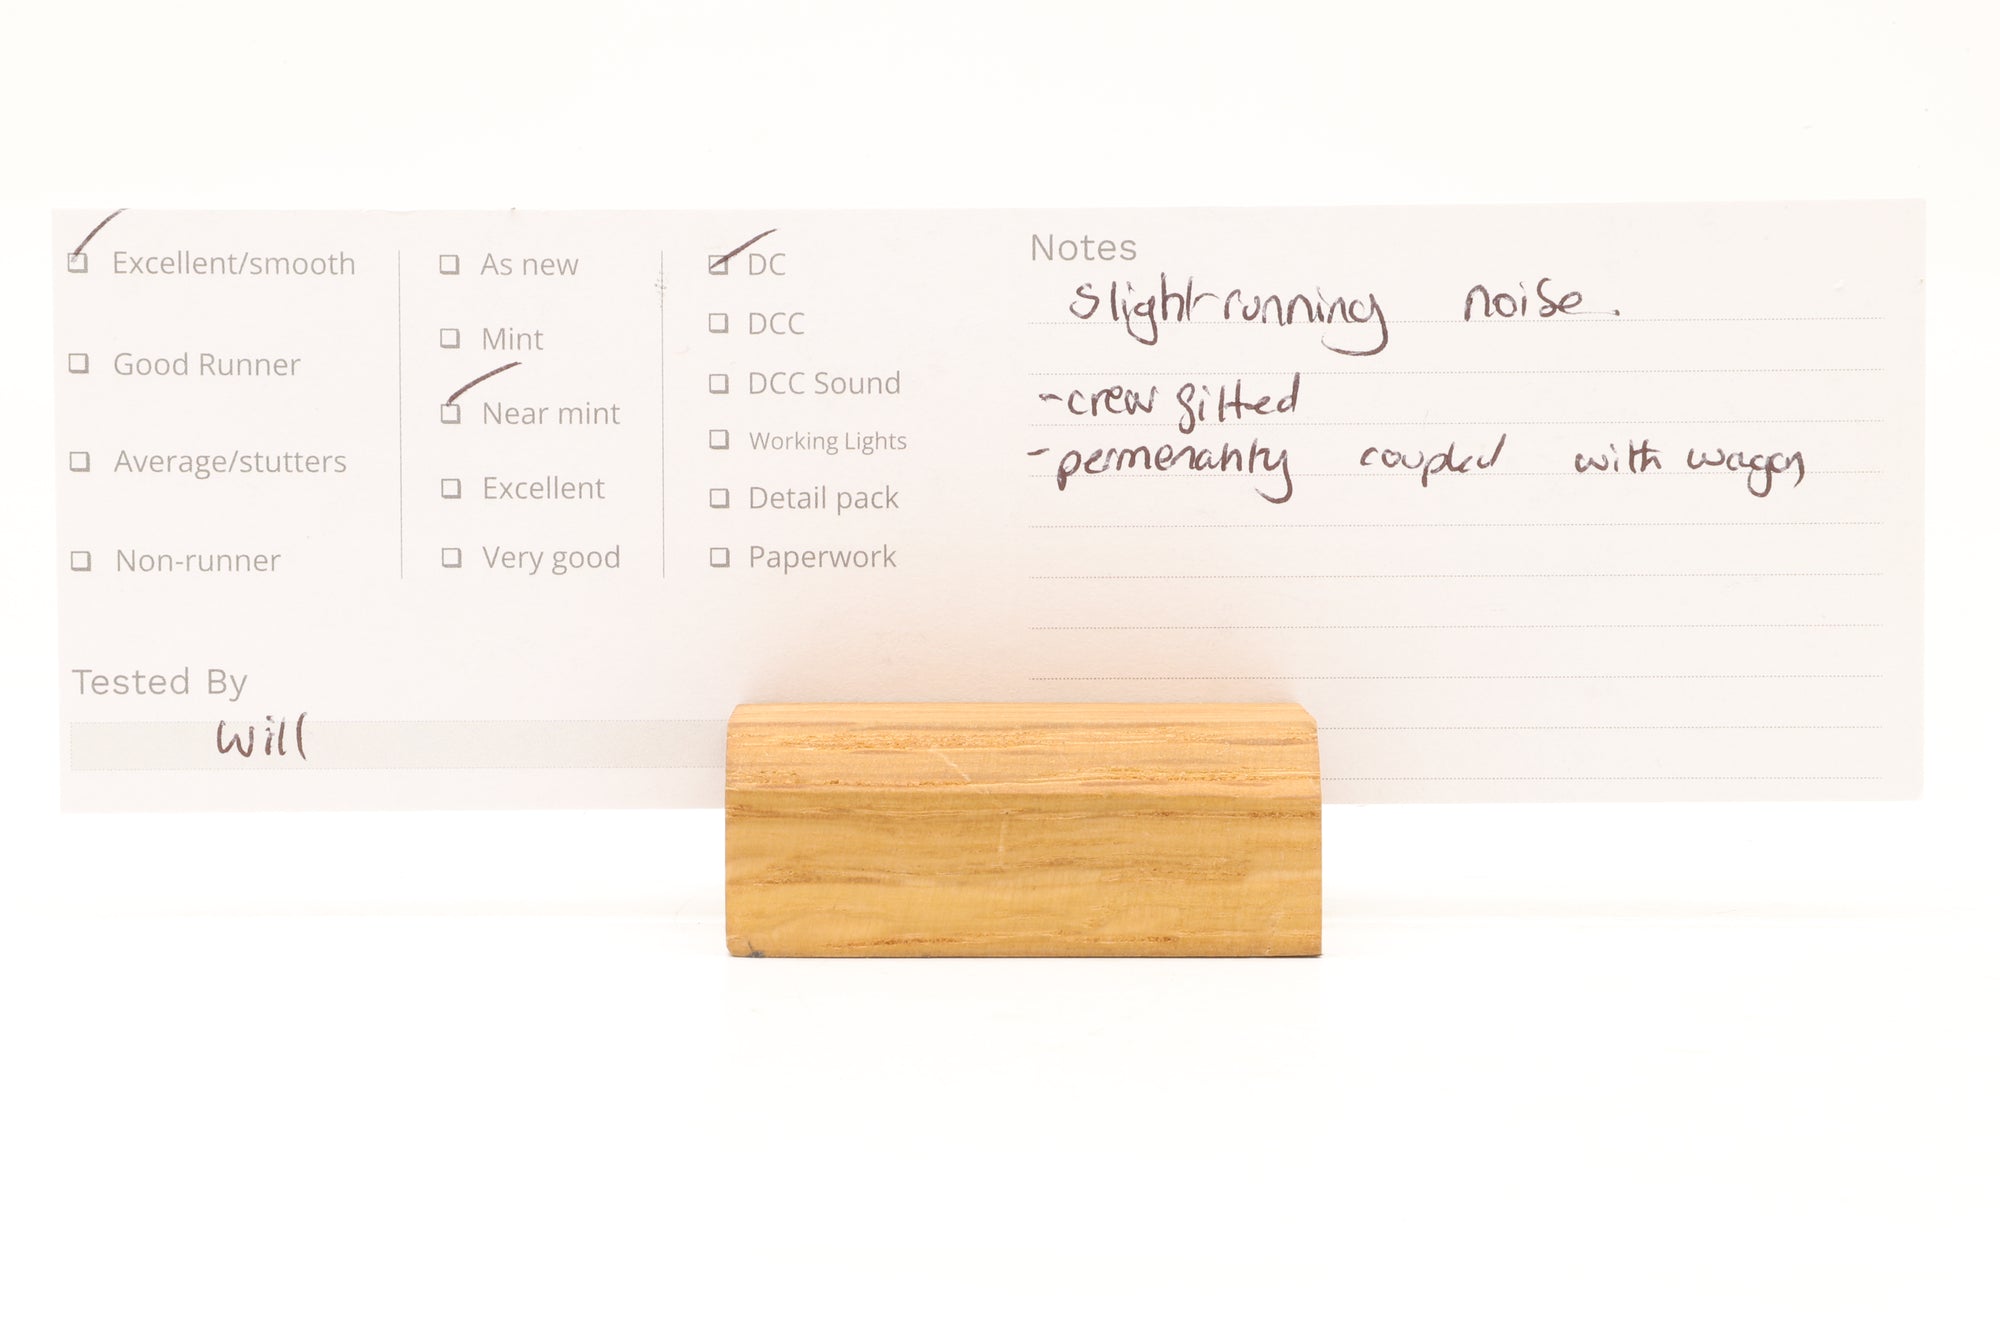 Excellent/smooth
Good Runner
Average/stutters
Non-runner
As new
Mint
Near mint
Excellent
Very good
DC
DCC
DCC Sound
Working Lights
Detail pack
Paperwork
Notes
slight running noise.
-crew fitted
-permenantly coupled with wagon
Tested By
Will